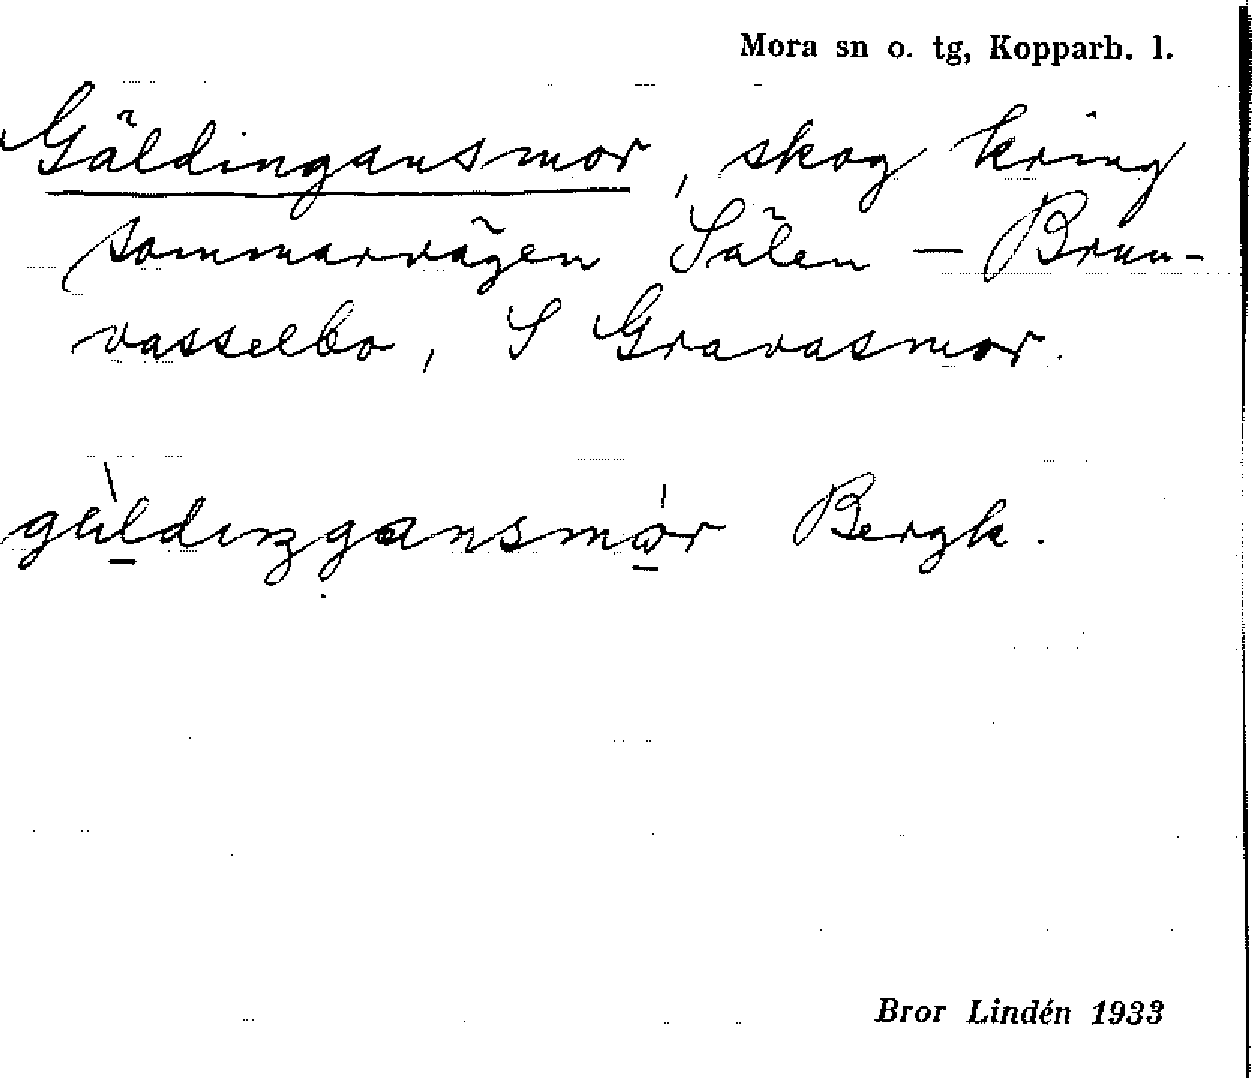 Mora sn o. tg, Kopparb. l.
Gäldingansmor, skog kring
sommarvägen Sälen – Brun-
vasselbo, S Gravasmor.
Bergk.
Bror Lindén 1933